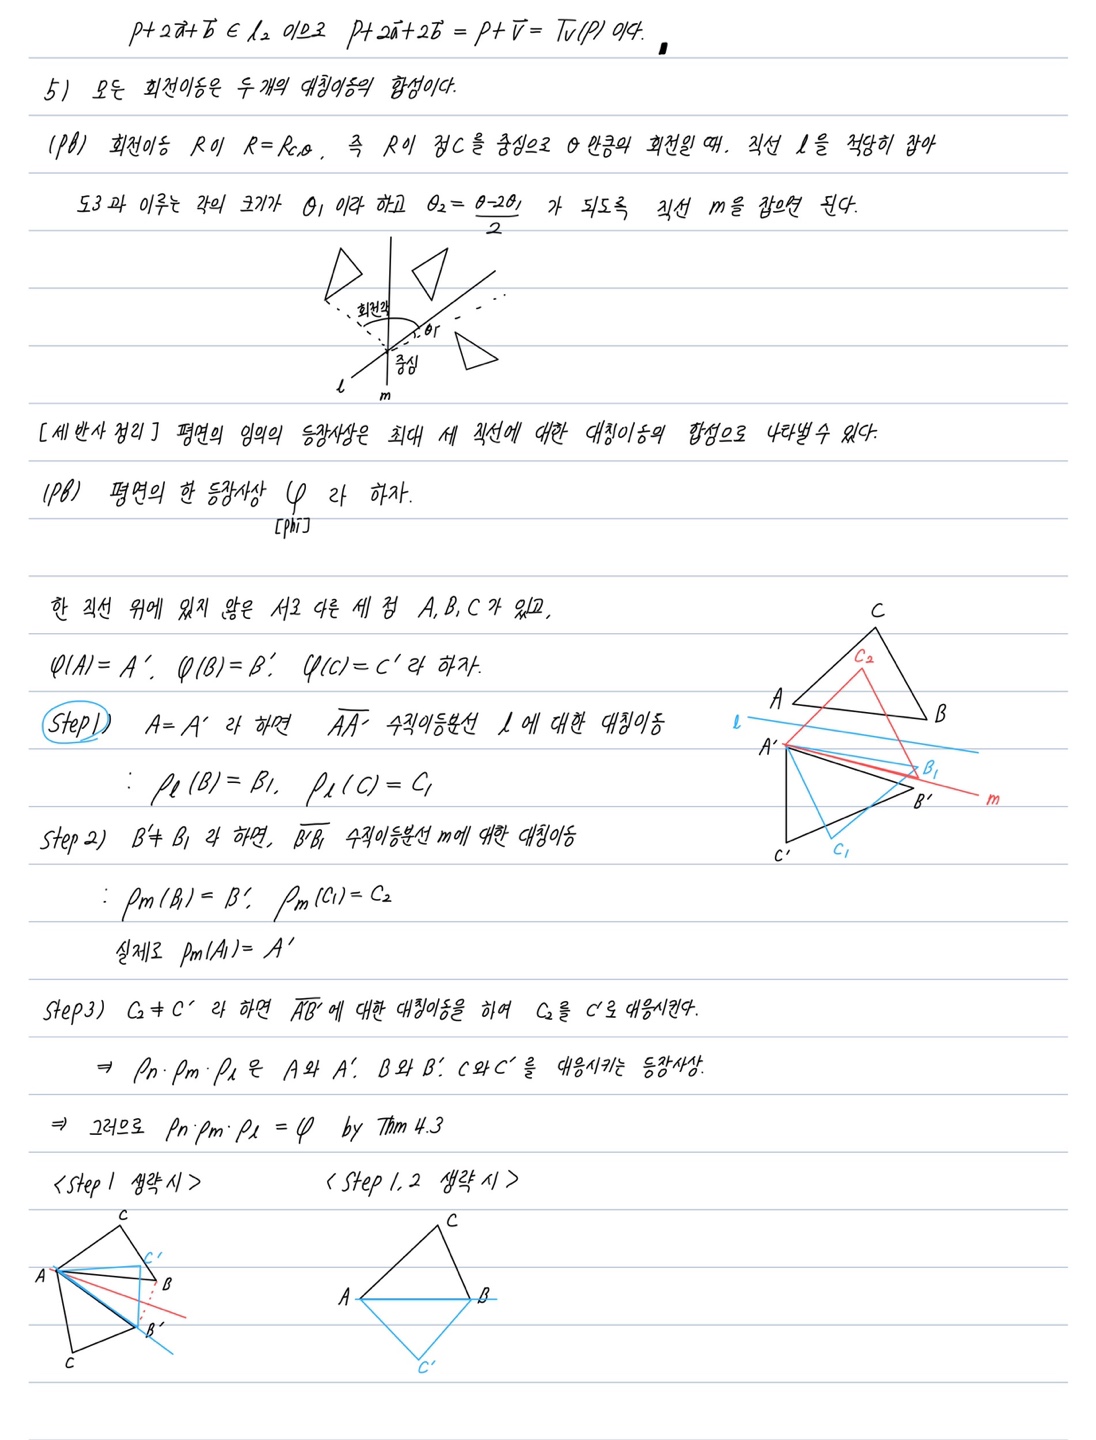 p+2a⃗+b⃗ ∈ l₂ 이므로 p+2a⃗+2b⃗ = p+v⃗ = Tv(p) 이다.
5) 모든 회전이동은 두 개의 대칭이동의 합성이다.
(pf) 회전이동 R이 R=R_{C,θ}, 즉 R이 점C를 중심으로 θ만큼의 회전일 때, 직선 l을 적당히 잡아
도3과 이루는 각의 크기가 θ₁ 이라 하고 θ₂= (θ-2θ₁)/2 가 되도록 직선 m을 잡으면 된다.
회전각
θ₁
중심
l
m
[세 반사 정리] 평면의 임의의 등장사상은 최대 세 직선에 대한 대칭이동의 합성으로 나타낼 수 있다.
(pf) 평면의 한 등장사상 φ 라 하자.
[phi]
한 직선 위에 있지 않은 서로 다른 세 점 A, B, C가 있고,
φ(A)= A′, φ(B)=B′, φ(C)=C′라 하자.
C
C₂
A
B
l
A′
B₁
B′
m
C′
C₁
Step1) A=A′ 라 하면 A̅A̅′ 수직이등분선 l에 대한 대칭이동
: ρl(B)=B₁, ρl(C)=C₁
Step2) B′≠B₁ 라 하면, B̅′B̅₁ 수직이등분선 m에 대한 대칭이동
: ρm(B₁)=B′, ρm(C₁)=C₂
실제로 ρm(A₁)= A′
Step3) C₂≠C′ 라 하면 A̅′B̅′에 대한 대칭이동을 하여 C₂를 C′로 대응시킨다.
⇒ ρn·ρm·ρl은 A와 A′, B와 B′, C와C′을 대응시키는 등장사상.
⇒ 그러므로 ρn·ρm·ρl = φ by Thm 4.3
<Step1 생략 시> <Step1,2 생략 시>
C
C′
A
B
B′
C
C
A
B
C′